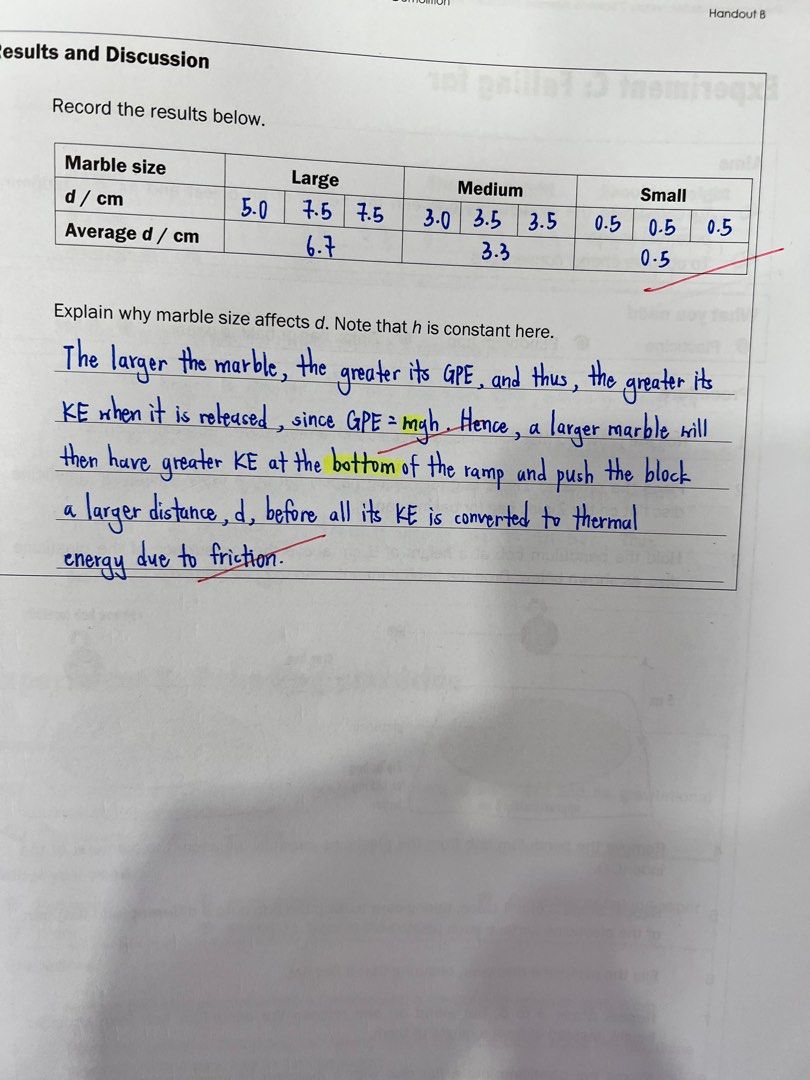 Handout B
Results and Discussion
Record the results below.
Marble size Large Medium Small
d / cm 5.0 7.5 7.5 3.0 3.5 3.5 0.5 0.5 0.5
Average d / cm 6.7 3.3 0.5
Explain why marble size affects d. Note that h is constant here.
The larger the marble, the greater its GPE, and thus, the greater its
KE when it is released, since GPE = mgh. Hence, a larger marble will
then have greater KE at the bottom of the ramp and push the block
a larger distance, d, before all its KE is converted to thermal
energy due to friction.